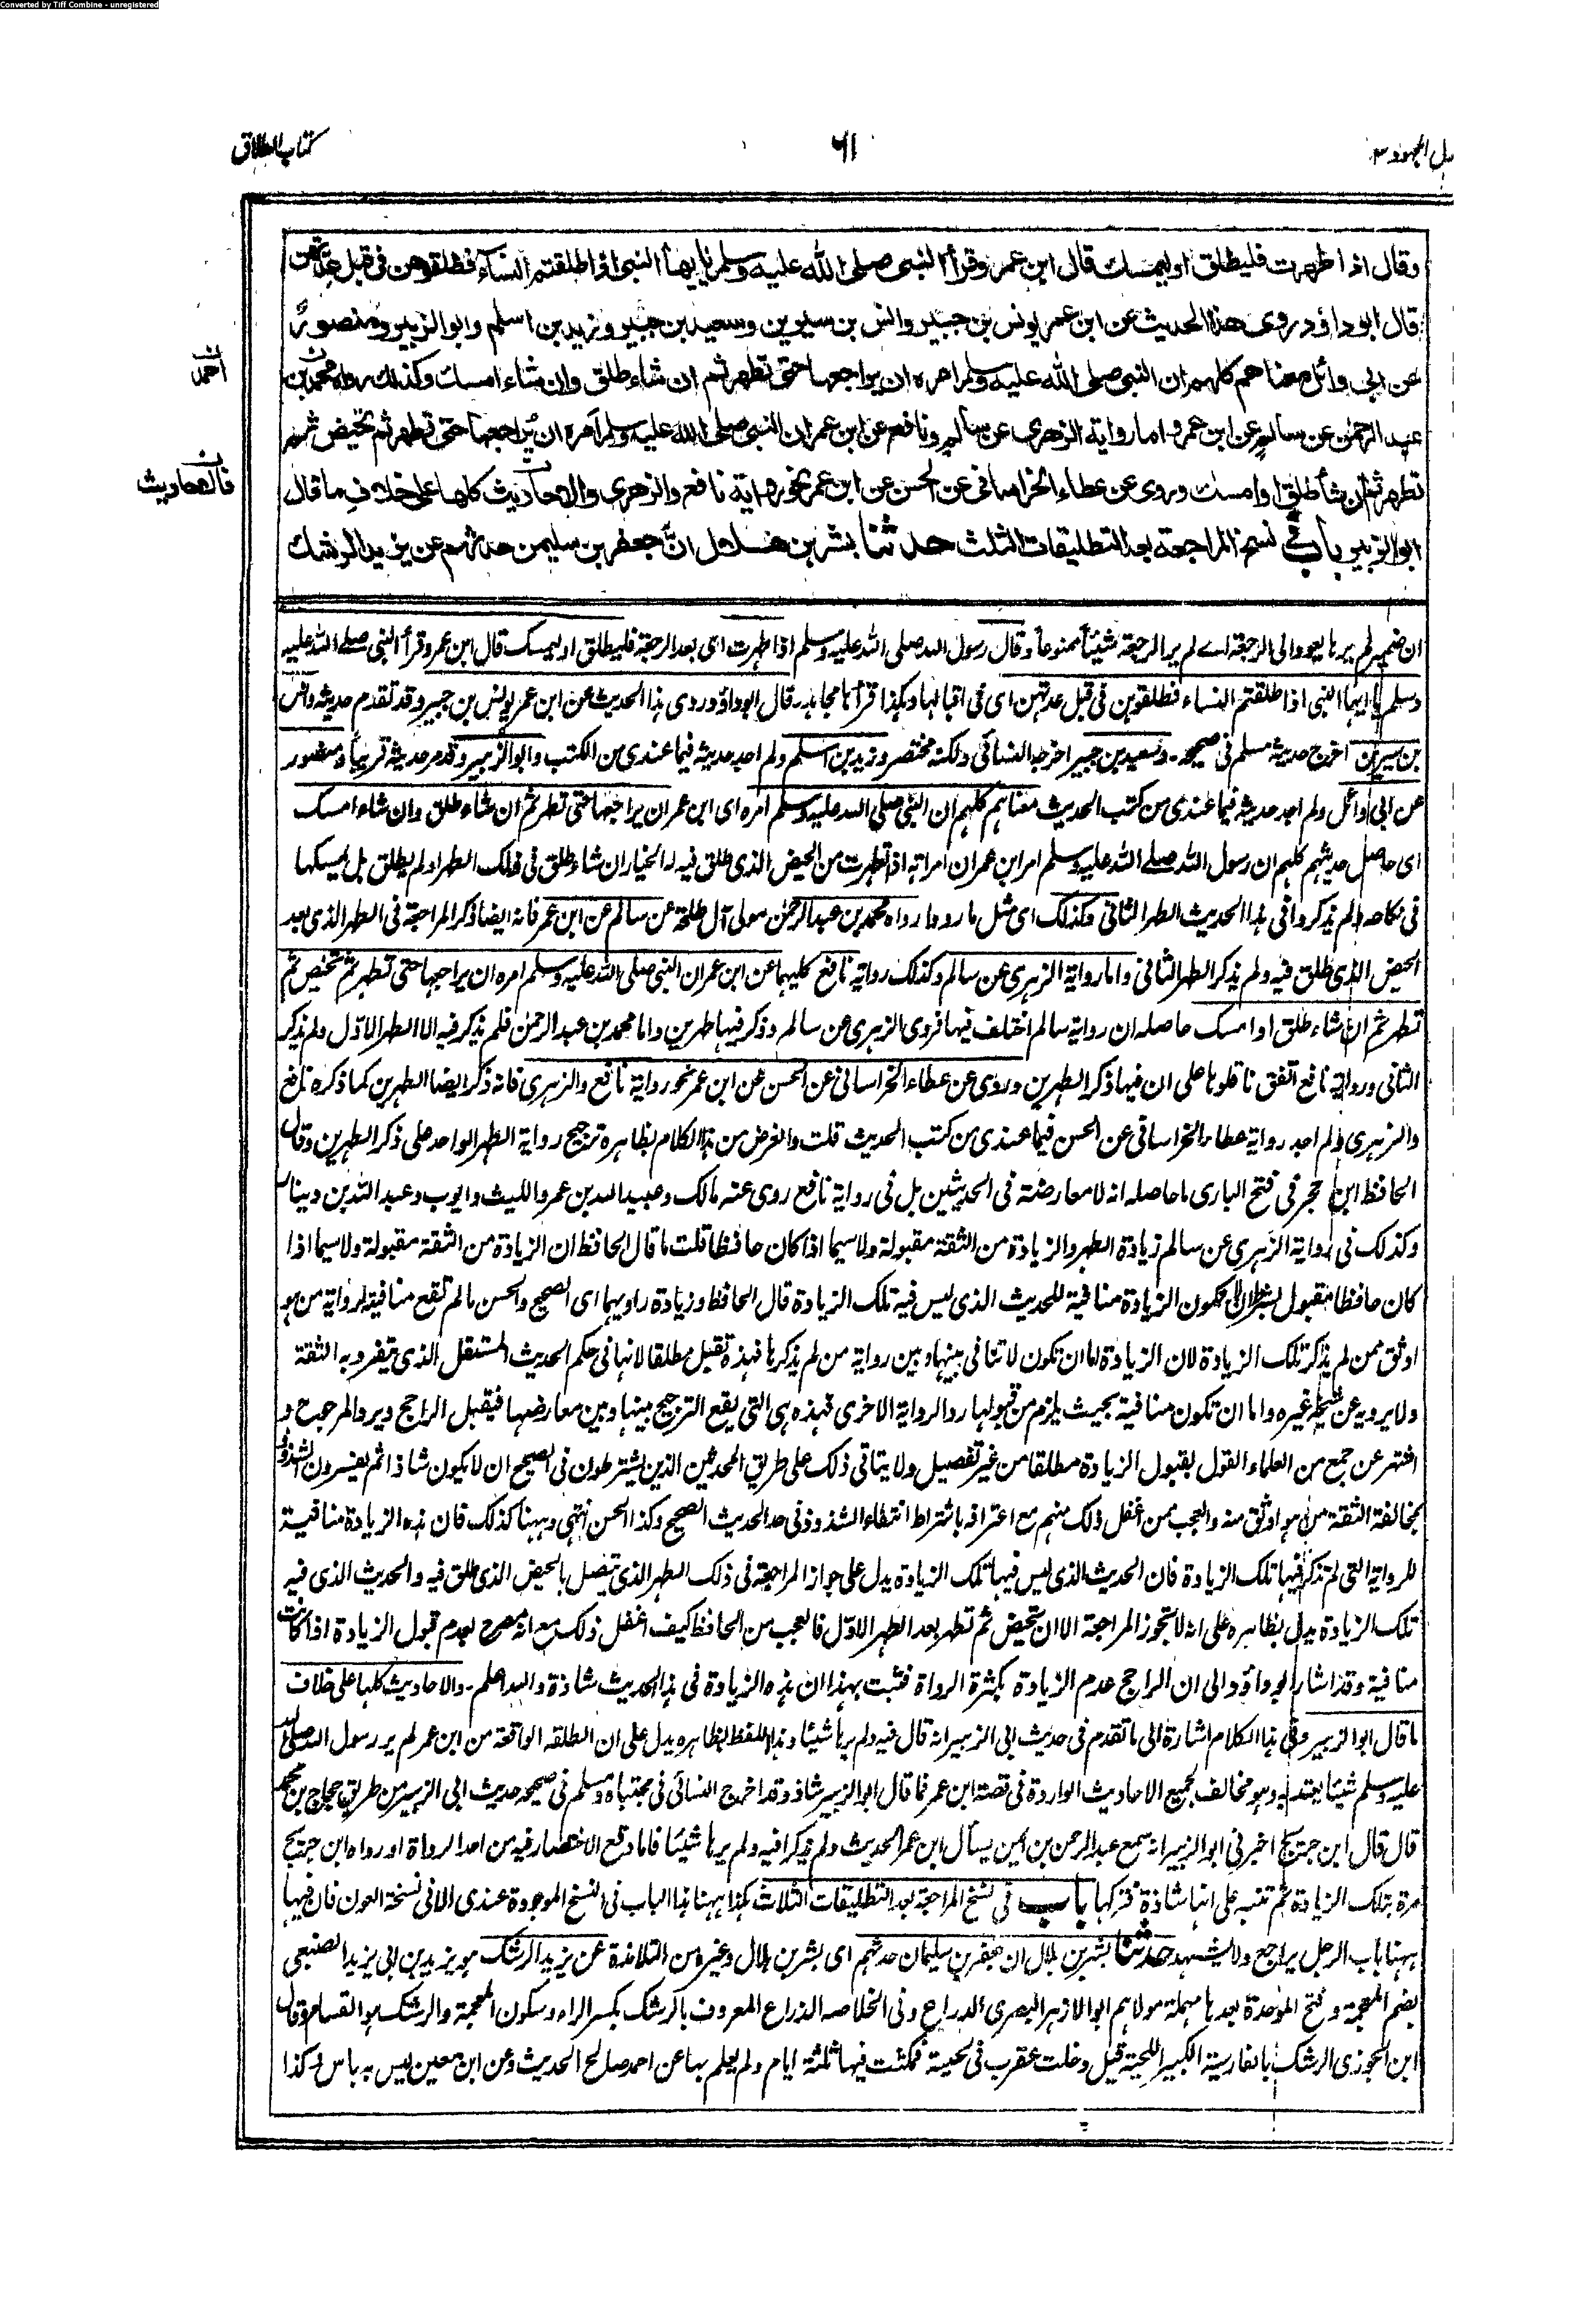 Converted by Tiff Combine - unregistered
بذل المجهود ٣
٦١
كتاب الطلاق
وقال اذا طهرت فليطلق او ليمسك قال ابن عمر وقرأ النبى صلى الله عليه وسلم يايها النبى اذا طلقتم النساء فطلقوهن فى قبل عدتهن
قال ابو داؤد روى هذا الحديث عن ابن عمر يونس بن جبير وانس بن سيرين وسعيد بن جبير وزيد بن اسلم وابو الزبير ومنصور
عن ابى وائل معناهم كلهم ان النبى صلى الله عليه وسلم امره ان يراجعها حتى تطهر ثم ان شاء طلق وان شاء امسك وكذلك رواه محمد بن
عبد الرحمن عن سالم عن ابن عمر واما رواية الزهرى عن سالم ونافع عن ابن عمر ان النبى صلى الله عليه وسلم امره ان يراجعها حتى تطهر ثم تحيض ثم
تطهر ثم ان شاء طلق او امسك وروى عن عطاء الخراسانى عن الحسن عن ابن عمر نحو رواية نافع والزهرى والاحاديث كلها على خلاف ما قال
ابو الزبير باب فى نسخ المراجعة بعد التطليقات الثلث حدثنا بشر بن هلال ان جعفر بن سليمن حدثهم عن يزيد الرشك
ن
احمد
ن
فالاحاديث
ان ضمير لم يرها يعود الى الرجعة اے لم ير الرجعة شيئا ممنوعا وقال رسول الله صلى الله عليه وسلم اذا طهرت اى بعد الرجعة فليطلق او ليمسك قال ابن عمر وقرأ النبى صلے الله عليه
وسلم يا ايها النبى اذا طلقتم النساء فطلقوهن فى قبل عدتهن اى فى اقبالها وهكذا قرأها مجاهد قال ابوداؤد وروى هذا الحديث عن ابن عمر يونس بن جبير وقد تقدم حديثه وانس
بن سيرين اخرج حديثه مسلم فى صحيحه وسعيد بن جبير اخرجه النسائى ولكنه مختصر وزيد بن اسلم ولم اجد حديثه فيما عندى من الكتب وابو الزبير وقد مر حديثه قريبا ومنصور
عن ابى وائل ولم اجد حديثه فيما عندى من كتب الحديث معناهم كلهم ان النبى صلى الله عليه وسلم امره اى ابن عمر ان يراجعها حتى تطهر ثم ان شاء طلق وان شاء امسك
اى حاصل حديثهم كلهم ان رسول الله صلے الله عليه وسلم امر ابن عمر ان امراته اذا تطهرت من الحيض الذى طلق فيه له الخيار ان شاء طلق فى ذلك الطهر او لم يطلق بل يمسكها
فى نكاحه ولم يذكروا فى هذا الحديث الطهر الثانى وكذلك اى مثل ما رووا رواه محمد بن عبد الرحمن مولى آل طلحة عن سالم عن ابن عمر فانه ايضا ذكر المراجعة فى الطهر الذى بعد
الحيض الذى طلق فيه ولم يذكر الطهر الثانى واما رواية الزهرى عن سالم وكذلك رواية نافع كليهما عن ابن عمر ان النبى صلى الله عليه وسلم امره ان يراجعها حتى تطهر ثم تحيض ثم
تطهر ثم ان شاء طلق او امسك حاصله ان رواية سالم اختلف فيها فروى الزهرى عن سالم وذكر فيها طهرين واما محمد بن عبد الرحمن فلم يذكر فيه الا الطهر الاول ولم يذكر
الثانى ورواية نافع اتفق ناقلوها على ان فيها ذكر الطهرين وروى عن عطاء الخراسانى عن الحسن عن ابن عمر نحو رواية نافع والزهرى فانه ذكر ايضا الطهرين كما ذكره نافع
والزهرى ولم اجد رواية عطاء الخراسانى عن الحسن فيما عندى من كتب الحديث قلت والغرض من هذا الكلام بظاهره ترجيح رواية الطهر الواحد على ذكر الطهرين وقال
الحافظ ابن حجر فى فتح البارى ما حاصله انه لا معارضة فى الحديثين بل فى رواية نافع روى عنه مالك وعبيد الله بن عمر والليث وايوب وعبد الله بن دينار
وكذلك فى رواية الزهرى عن سالم زيادة الطهر والزيادة من الثقة مقبولة ولا سيما اذا كان حافظا قلت ما قال الحافظ ان الزيادة من الثقة مقبولة ولا سيما اذا
كان حافظا فمقبول بشرط ان لا يكون الزيادة منافية للحديث الذى ليس فيه تلك الزيادة قال الحافظ وزيادة راويهما اى الصحيح والحسن ما لم تقع منافية لرواية من هو
اوثق ممن لم يذكر تلك الزيادة لان الزيادة اما ان تكون لا تنافى بينها وبين رواية من لم يذكرها فهذه تقبل مطلقا لانها فى حكم الحديث المستقل الذى يتفرد به الثقة
ولا يرويه عن شيخه غيره واما ان تكون منافية بحيث يلزم من قبولها رد الرواية الاخرى فهذه هى التى يقع الترجيح بينها وبين معارضها فيقبل الراجح ويرد المرجوح و
اشتهر عن جمع من العلماء القول بقبول الزيادة مطلقا من غير تفصيل ولا يتاتى ذلك على طريق المحدثين الذين يشترطون فى الصحيح ان لا يكون شاذا ثم يفسرون الشذوذ
بمخالفة الثقة من هو اوثق منه والعجب ممن غفل ذلك منهم مع اعترافه باشتراط انتفاء الشذوذ فى حد الحديث الصحيح وكذا الحسن انتهى وههنا كذلك فان هذه الزيادة منافية
للرواية التى لم تذكر فيها تلك الزيادة فان الحديث الذى ليس فيها تلك الزيادة يدل على جواز المراجعة فى ذلك الطهر الذى يتصل بالحيض الذى طلق فيه والحديث الذى فيه
تلك الزيادة يدل بظاهره على انه لا تجوز المراجعة الا ان تحيض ثم تطهر بعد الطهر الاول فالعجب من الحافظ كيف غفل ذلك مع انه صرح بعدم قبول الزيادة اذا كانت
منافية وقد اشار ابو داؤد الى ان الراجح عدم الزيادة بكثرة الرواة فثبت بهذا ان هذه الزيادة فى هذا الحديث شاذة والله اعلم والاحاديث كلها على خلاف
ما قال ابو الزبير وفى هذا الكلام اشارة الى ما تقدم فى حديث ابى الزبير انه قال فيه ولم يرها شيئا وهذا اللفظ بظاهره يدل على ان الطلقة الواقعة من ابن عمر لم ير رسول الله صلى الله
عليه وسلم شيئا يعتد به وهو مخالف لجميع الاحاديث الواردة فى قصة ابن عمر فما قال ابو الزبير شاذ وقد اخرج النسائى فى مجتباه ومسلم فى صحيحه حديث ابى الزبير من طريق حجاج بن محمد
قال قال ابن جريج اخبرنى ابو الزبير انه سمع عبد الرحمن بن ايمن يسأل ابن عمر الحديث ولم يذكرا فيه ولم يرها شيئا فاما وقع الاختصار فيه من احد الرواة او رواه ابن جريج
مرة بتلك الزيادة ثم تنبه على انها شاذة فتركها باب فى نسخ المراجعة بعد التطليقات الثلاث هكذا ههنا هذا الباب فى النسخ الموجودة عندى الا فى نسخة العون فان فيها
ههنا باب الرجل يراجع ولا يشهد حدثنا بشر بن هلال ان جعفر بن سليمان حدثهم اى بشر بن هلال وغيره من التلامذة عن يزيد الرشك هو يزيد بن ابى يزيد الضبعى
بضم المعجمة وفتح الموحدة بعدها مهملة مولاهم ابو الازهر البصرى الدراع وفى الخلاصه الذراع المعروف بالرشك بكسر الراء وسكون المعجمة والرشك هو القسام وقال
ابن الجوزى الرشك بالفارسية الكبير اللحية قيل دخلت عقرب فى لحيته فمكثت فيها ثلثة ايام ولم يعلم بها عن احمد صالح الحديث وعن ابن معين ليس به باس وكذا